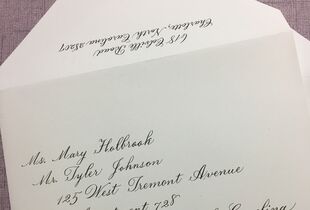 618 Colville Road
Charlotte, North Carolina 28207
Ms. Mary Holbrook
Mr. Tyler Johnson
125 West Tremont Avenue
728
Carolina